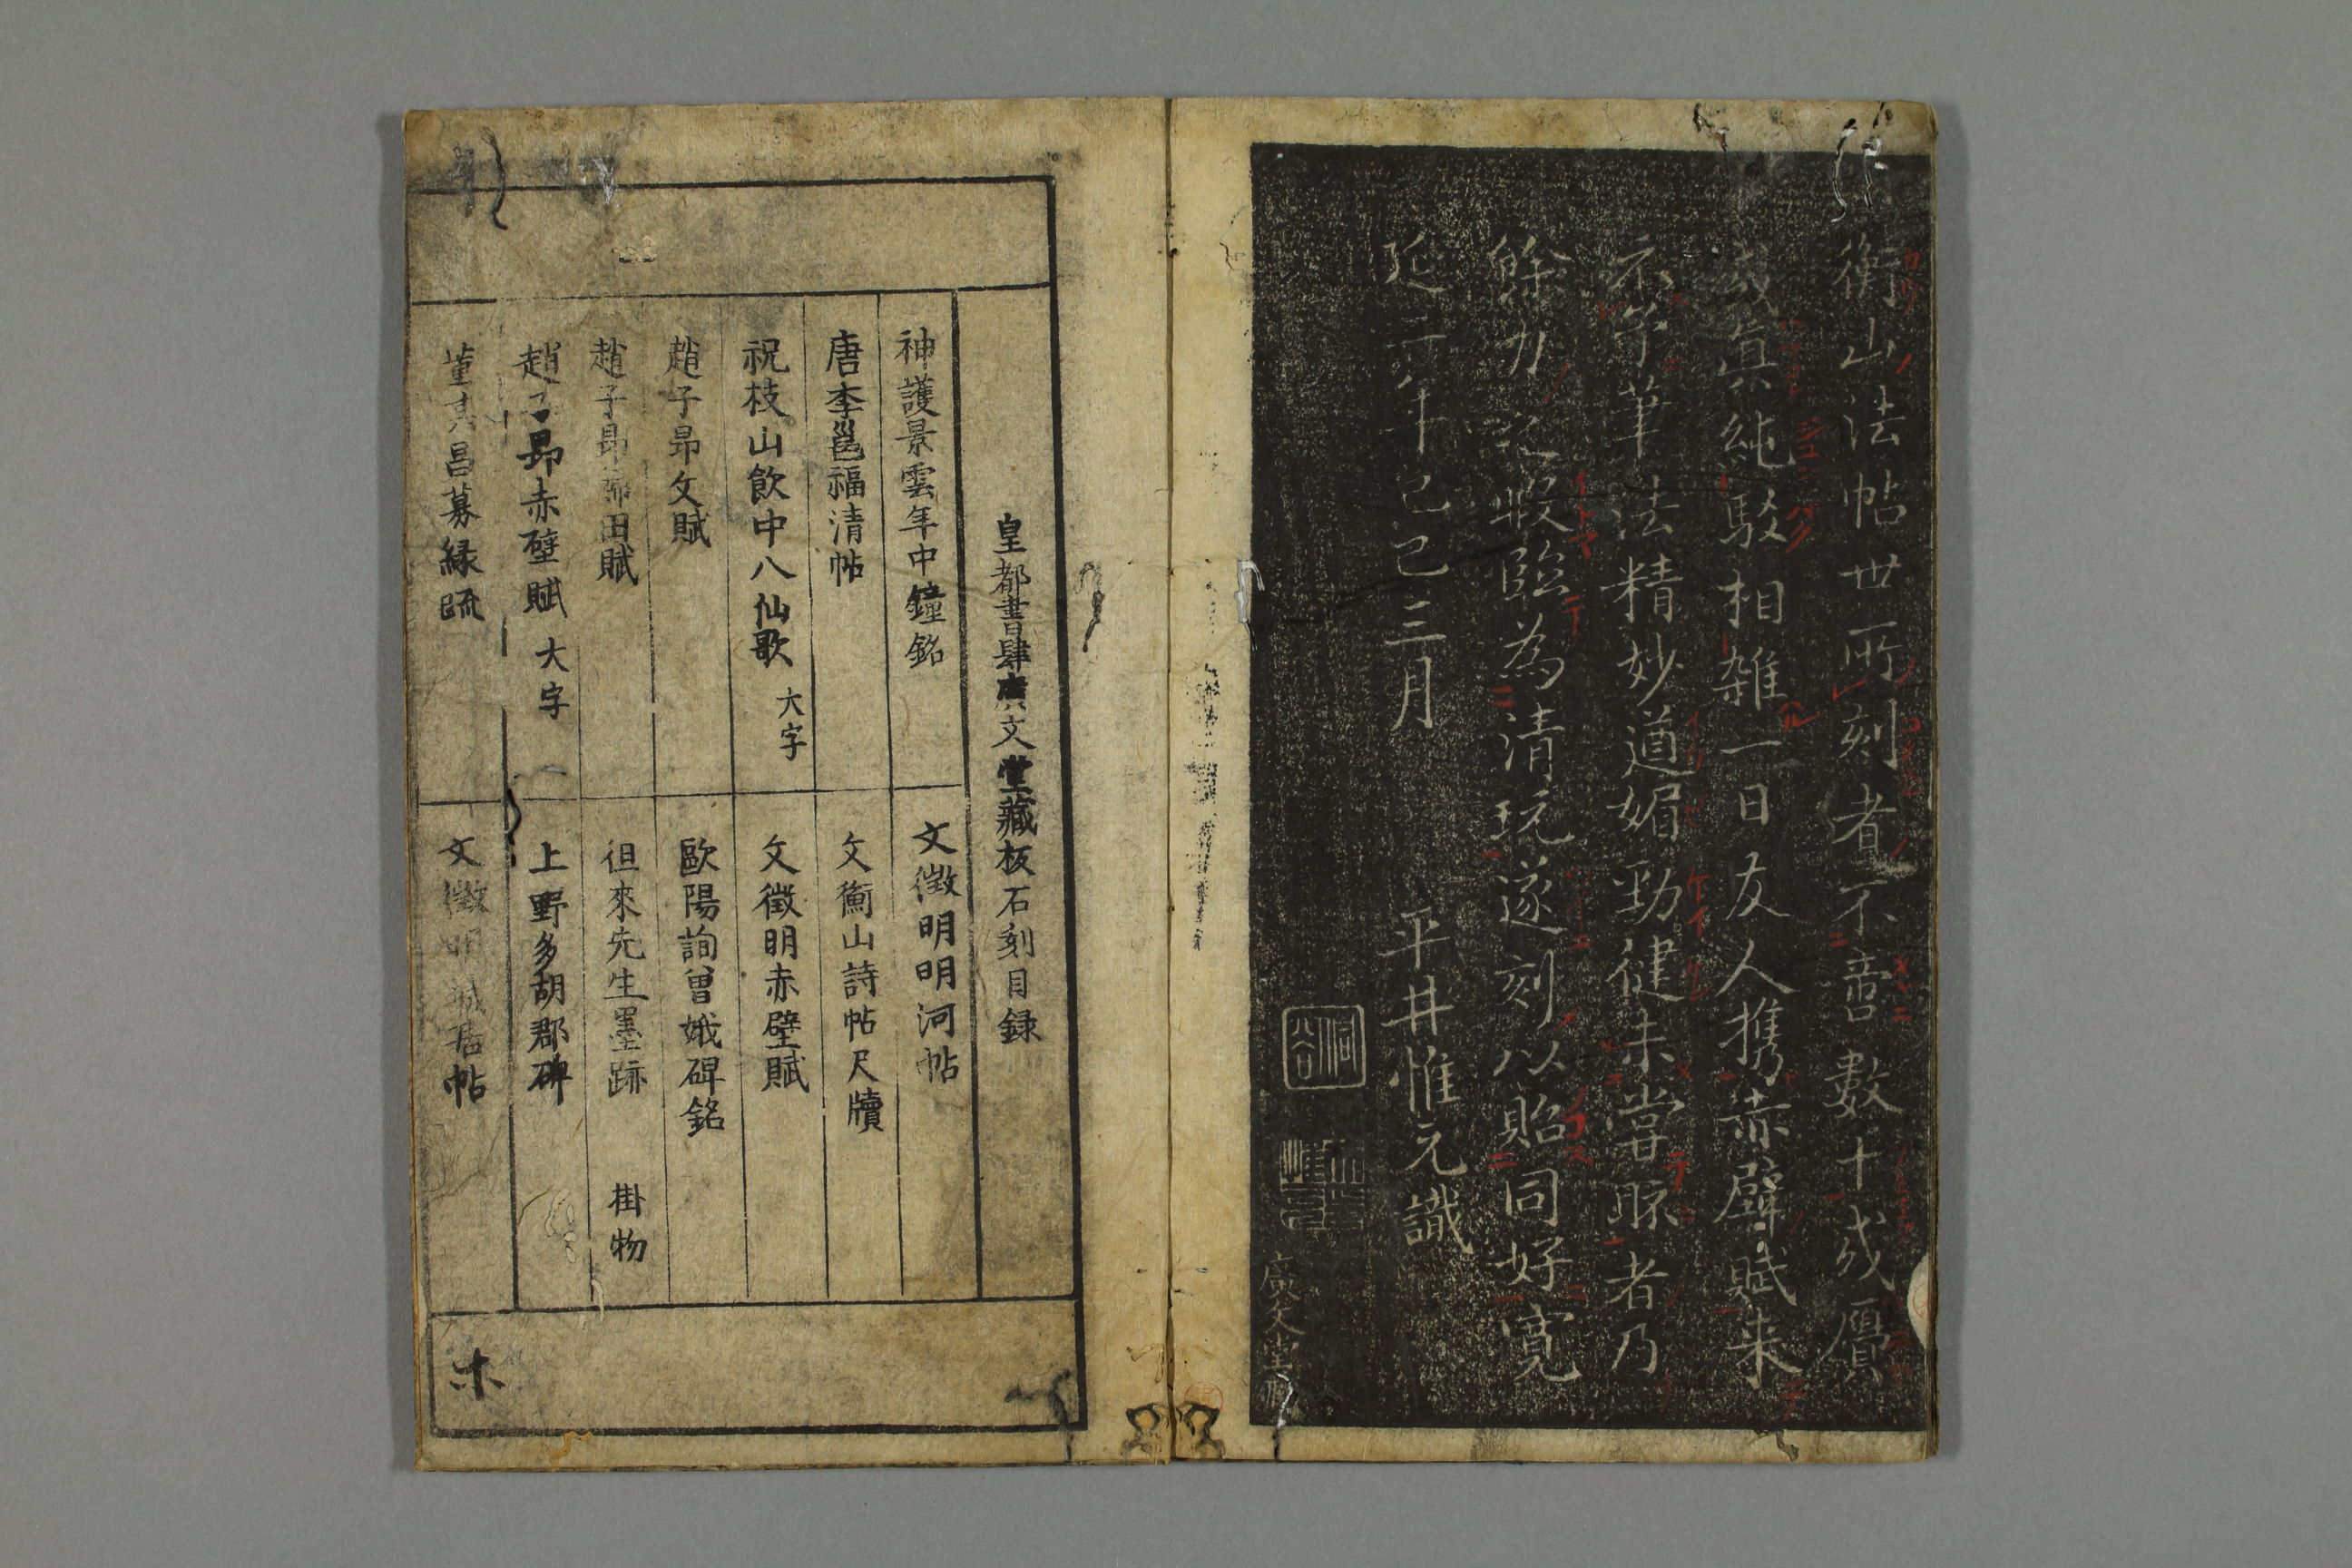 衡山法帖世所刻者不啻數十或贋
或真純駁相雑一日友人携赤壁賦来
示予筆法精妙遒媚勁健未嘗眎者乃
餘力之暇臨為清玩遂刻以貽同好寛
延二年己巳三月　平井惟元識
廣文堂
皇都書肆廣文堂藏板石刻目録
神護景雲年中鐘銘
文徴明明河帖
唐李邕福清帖
文衡山詩帖尺牘
祝枝山飲中八仙歌　大字
文徴明赤壁賦
趙子昂文賦
歐陽詢曾娥碑銘
趙子昂帰田賦
徂來先生墨跡　掛物
趙子昂赤壁賦　大字
上野多胡郡碑
董其昌募縁疏
文徴明誡居帖